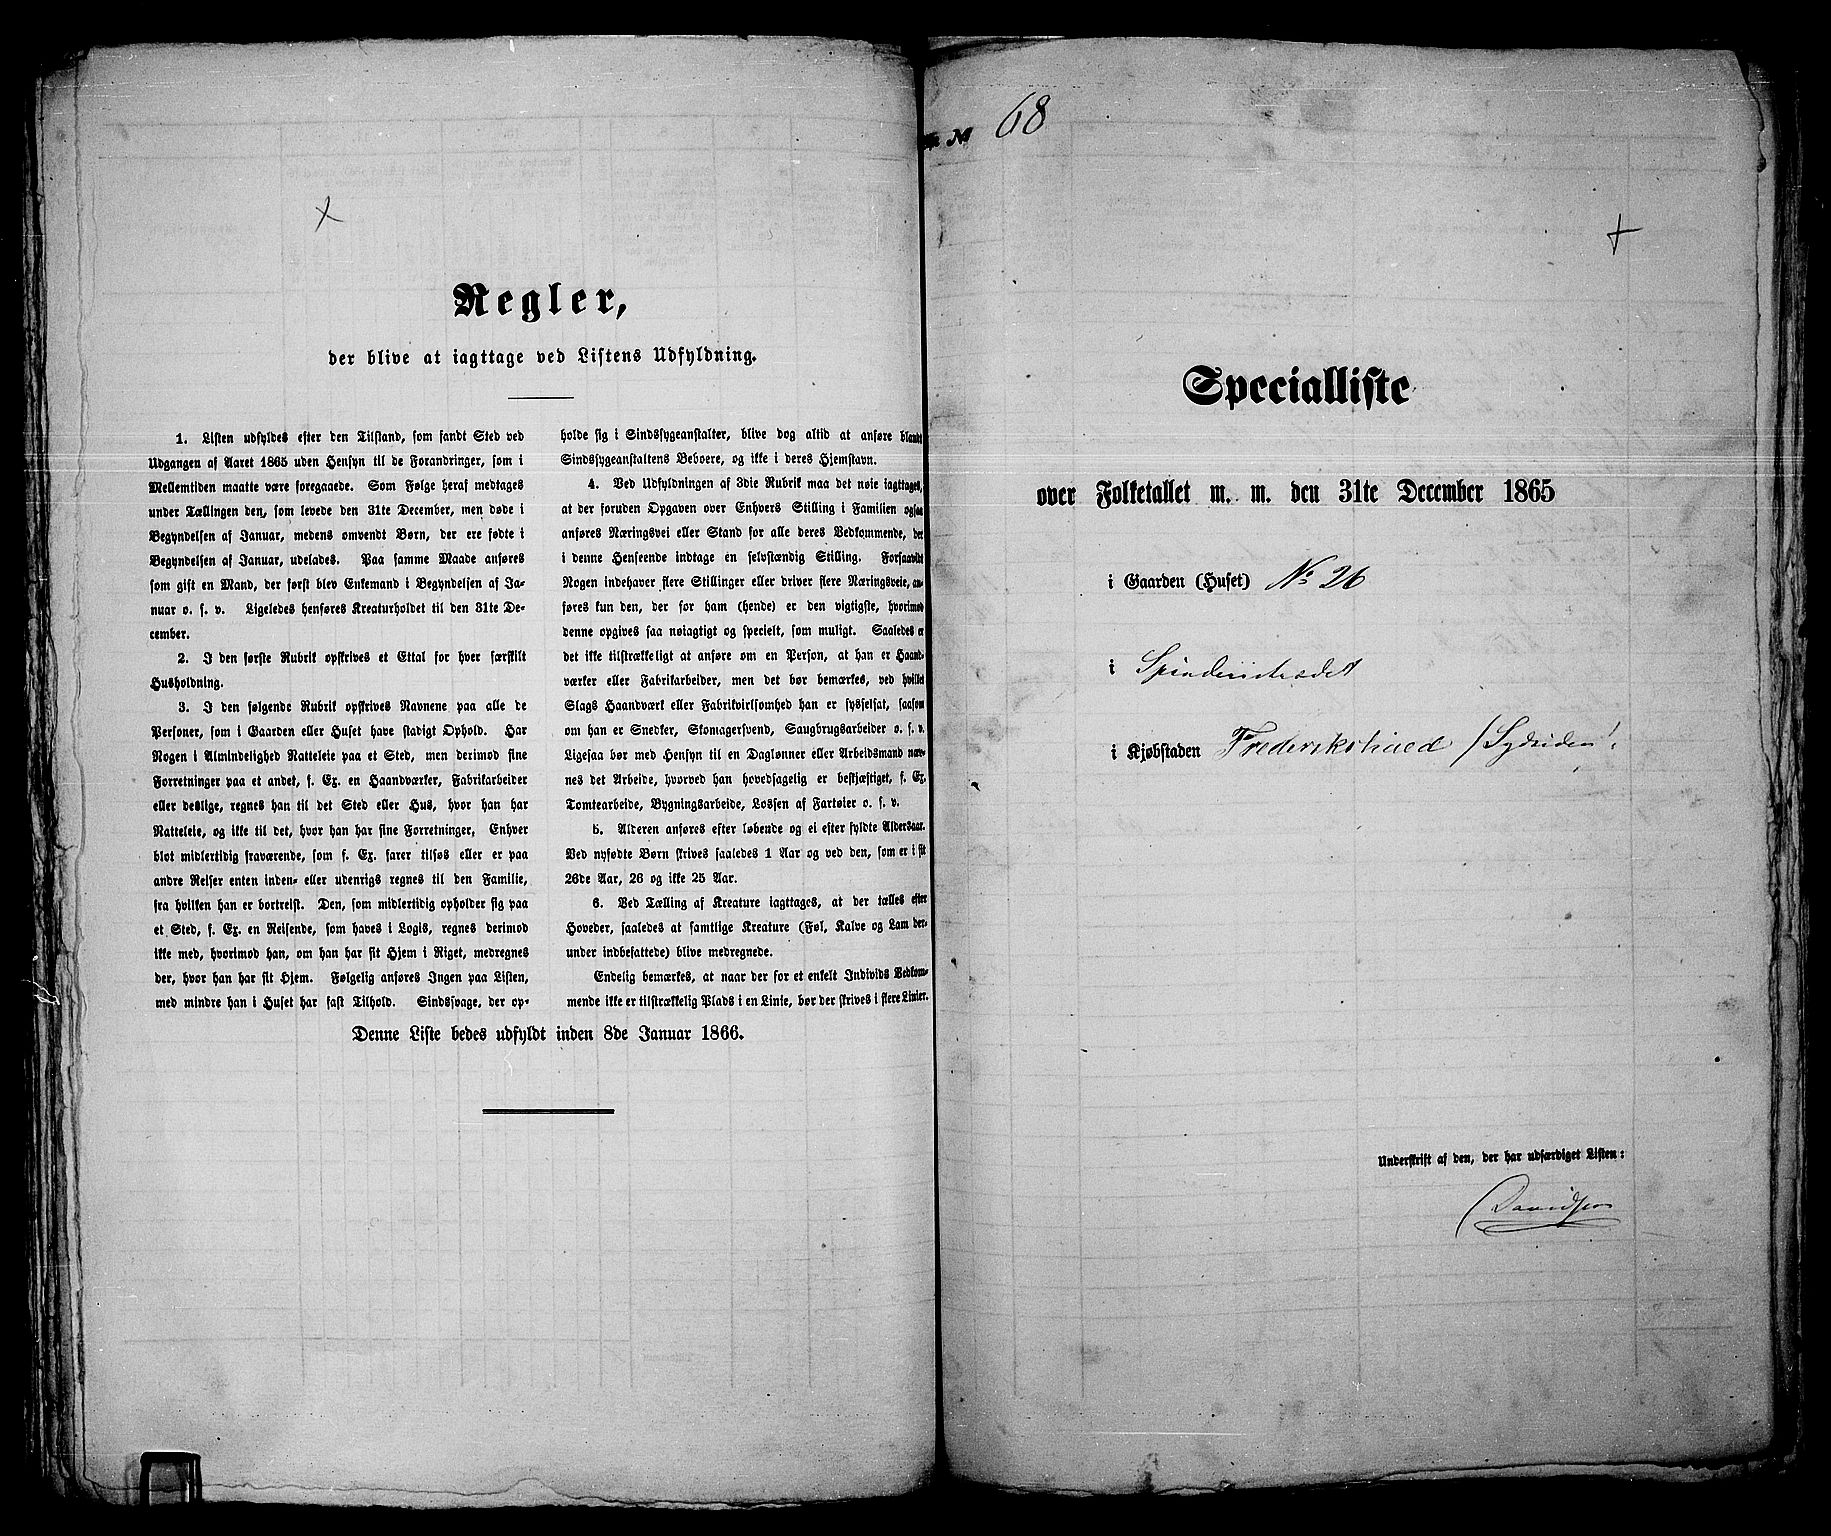 Regler,
der blive at iagttage ved Listens Udfyldning.
1. Listen udfyldes efter den Tilstand, som fandt Sted ved
Udgangen af Aaret 1865 uden Hensyn til de Forandringer, som i
Mellemtiden maatte være foregaaede. Som Følge heraf medtages
under Tællingen den, som levede den 31te December, men døde i
Begyndelsen af Januar, medens omvendt Børn, der ere fødte i
Begyndelsen af Januar, udelades. Paa samme Maade anføres
som gift en Mand, der først blev Enkemand i Begyndelsen af Ja-
nuar o. s. v. Ligeledes henføres Kreaturholdet til den 31te De-
cember.
2. I den første Rubrik opskrives et Ettal for hver særskilt
Husholdning.
3. I den følgende Rubrik opskrives Navnene paa alle de
Personer, som i Gaarden eller Huset have stadigt Ophold. Har
Nogen i Almindelighed Natteleie paa et Sted, men derimod sine
Forretninger paa et andet, f. Ex. en Haandværker, Fabrikarbeider
eller deslige, regnes han til det Sted eller Hus, hvor han har
Natteleie, og ikke til det, hvor han har sine Forretninger. Enhver
blot midlertidig fraværende, som f. Ex. farer tilsøs eller er paa
andre Reiser enten inden- eller udenrigs regnes til den Familie,
fra hvilken han er bortreist. Den, som midlertidig opholder sig paa
et Sted, f. Ex. en Reisende, som haves i Logis, regnes derimod
ikke med, hvorimod han, om han har sit Hjem i Riget, medregnes
der, hvor han har sit Hjem. Følgelig anføres Ingen paa Listen,
med mindre han i Huset har fast Tilhold. Sindssvage, der op-
holde sig i Sindssygeanstalter, blive dog altid at anføre blandt
Sindssygeanstaltens Beboere, og ikke i deres Hjemstavn.
4. Ved Udfyldningen af 3die Rubrik maa det nøie iagttages,
at der foruden Opgaven over Enhvers Stilling i Familien ogsaa
anføres Næringsvei eller Stand for alle deres Vedkommende, der
i denne Henseende indtage en selvstændig Stilling. Forsaavidt
Nogen indehaver flere Stillinger eller driver flere Næringsveie, an-
føres kun den, der for ham (hende) er den vigtigste, hvorimod
denne opgives saa nøiagtigt og specielt, som muligt. Saaledes er
det ikke tilstrækkeligt at anføre om en Person, at han er Haand-
værker eller Fabrikarbeider, men det bør bemærkes, ved hvilket
Slags Haandværk eller Fabrikvirksomhed han er sysselsat, saasom
om han er Snedker, Skomagersvend, Saugbrugsarbeider o. s. v.
Ligesaa bør med Hensyn til en Daglønner eller Arbeidsmand næv-
nes det Arbeide, hvorved han hovedsagelig er beskjæftiget, f. Ex.
Tomtearbeide, Bygningsarbeide, Lossen af Fartøier o. s. v.
5. Alderen anføres efter løbende og ei efter fyldte Aldersaar.
Ved nyfødte Børn skrives saaledes 1 Aar og ved den, som er i sit
26de Aar, 26 og ikke 25 Aar.
6. Ved Tælling af Kreature iagttages, at der tælles efter
Hoveder, saaledes at samtlige Kreature (Føl, Kalve og Lam der-
under indbefattede) blive medregnede.
Endelig bemærkes, at naar der for et enkelt Individs Vedkom-
mende ikke er tilstrækkelig Plads i en Linie, bør der skrives i flere Linier.
Denne Liste bedes udfyldt inden 8de Januar 1866.
№ 68
Specialliste
over Folketallet m. m. den 31te December 1865
i Gaarden (Huset) No 26
i Spinderistrædet
i Kjøbstaden Frederikstad /Sydsiden/.
Underskrift af den, der har udfærdiget Listen:
Davidsen